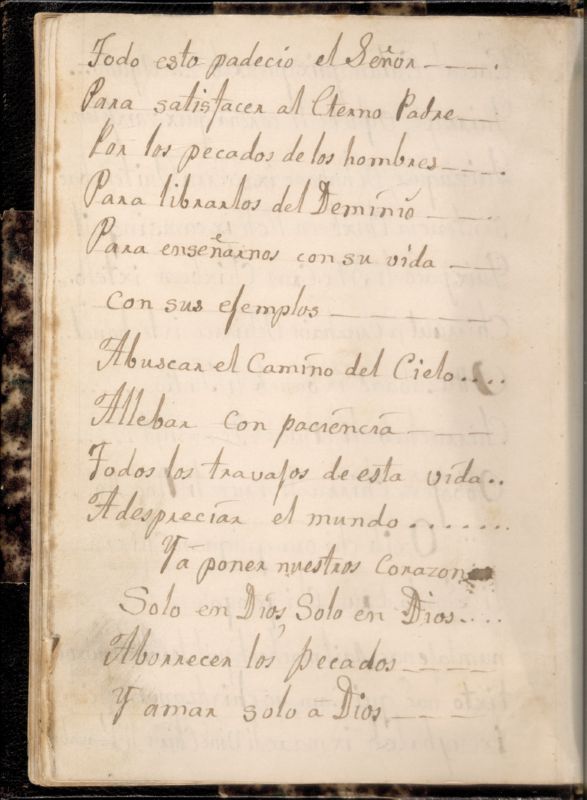 Todo esto padecio el Señor - - - .
Para satisfacer al Eterno Padre - -
Por los pecados de los hombres - - - .
Para librarlos del Deminio - - - .
Para enseñarnos con su vida - -
Con sus efemplos - - - - - -
Abuscar el Camino del Cielo . . . .
Allebar con paciencia - - - -
Todos los travafos de esta vida . .
Adespreciar el mundo . . . . . . .
Ya poner nuestros Corazon
Solo en Dios, Solo en Dios . . . .
Aborrecer los Pecados - - - -
Y amar solo a Dios - - - -